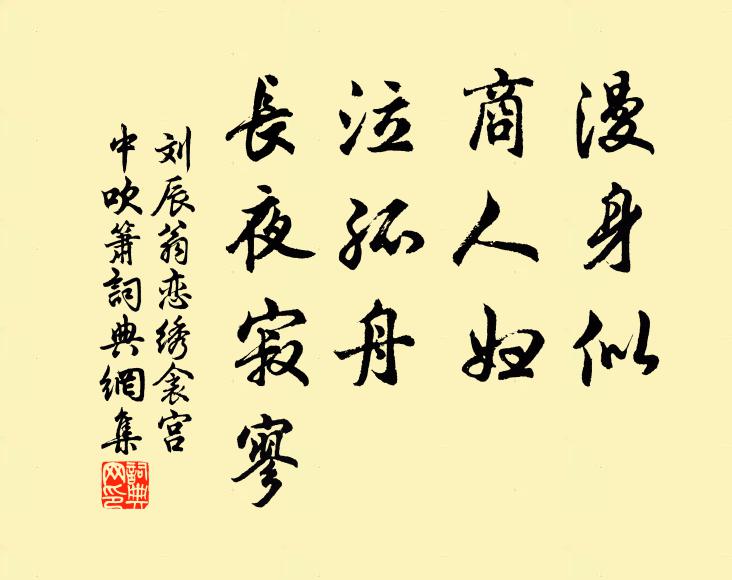 漫身似
商人妇
泣孤舟
長夜寂寥
刘辰翁恋绣衾宫
中吹簫詞典網集
詞典
网印